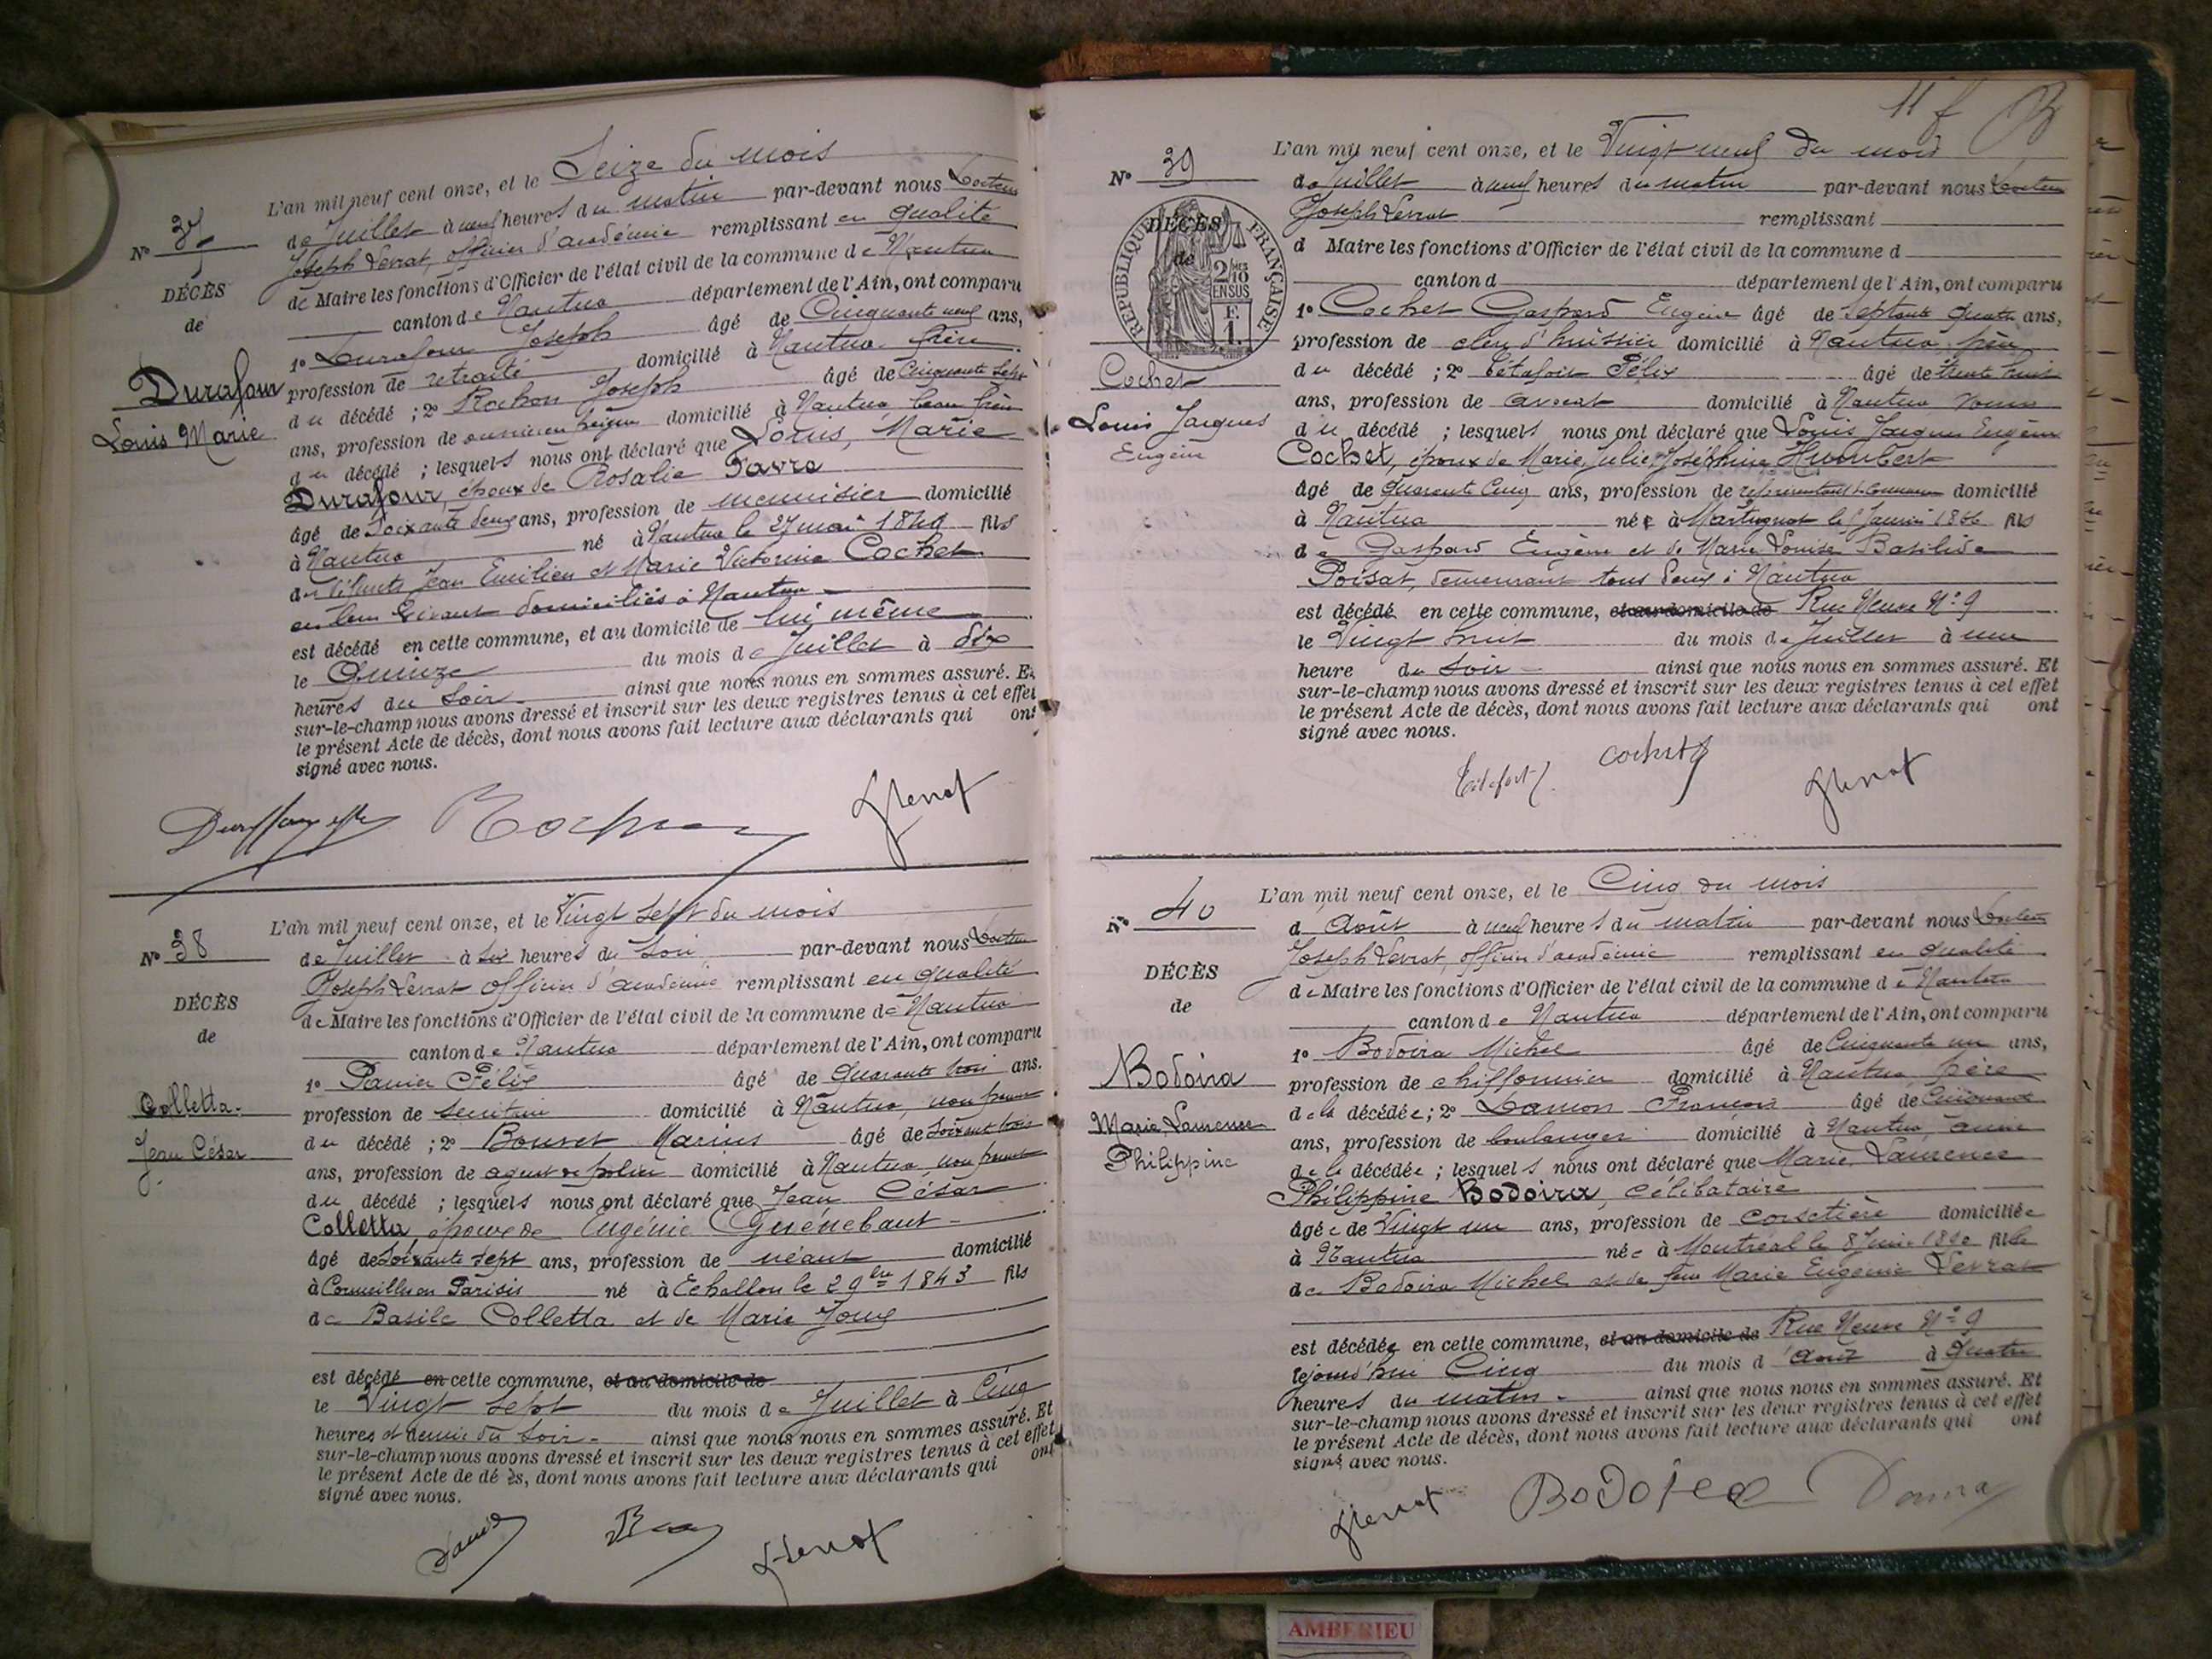 L'an mil neuf cent onze, et le Seize du mois
de Juillet à neuf heures du matin par-devant nous Docteur
Joseph Levrat, officier d'académie remplissant en qualité
de Maire les fonctions d'Officier de l'état civil de la commune de Nantua
canton de Nantua département de l'Ain, ont comparu
1º Durafour Joseph âgé de Cinquante neuf ans,
profession de retraité domicilié à Nantua frère
du décédé ; 2º Rochon Joseph âgé de Cinquante sept
ans, profession de ouvrier en peigne domicilié à Nantua beau frère
du décédé ; lesquels nous ont déclaré que Louis, Marie
Durafour, époux de Rosalie Favre
âgé de Soixante deux ans, profession de menuisier domicilié
à Nantua né à Nantua le 27 mai 1849 fils
des défunts Jean Emilien et Marie Victorine Cochet
en leur vivant domiciliés à Nantua
est décédé en cette commune, et au domicile de lui même
le Quinze du mois de Juillet à dix
heures du soir ainsi que nous nous en sommes assuré. Et
sur-le-champ nous avons dressé et inscrit sur les deux registres tenus à cet effet
le présent Acte de décès, dont nous avons fait lecture aux déclarants qui ont
signé avec nous.
Nº 37
DÉCÈS
de
Durafour
Louis Marie
L'an mil neuf cent onze, et le Vingt sept du mois
de Juillet à six heures du soir par-devant nous Docteur
Joseph Levrat officier d'académie remplissant en qualité
de Maire les fonctions d'Officier de l'état civil de la commune de Nantua
canton de Nantua département de l'Ain, ont comparu
1º Panier Félix âgé de Quarante trois ans.
profession de secrétaire domicilié à Nantua, non parent
du décédé ; 2º Bouvet Marius âgé de Soixante trois
ans, profession de agent de police domicilié à Nantua non parent
du décédé ; lesquels nous ont déclaré que Jean César
Colletta, époux de Eugénie Guénebaut
âgé de Soixante sept ans, profession de néant domicilié
à Cormeilles en Parisis né à Echallon le 2 9bre 1843 fils
de Basile Colletta et de Marie Jouy
est décédé en cette commune, et au domicile de
le Vingt sept du mois de Juillet à Cinq
heures et demie du soir ainsi que nous nous en sommes assuré. Et
sur-le-champ nous avons dressé et inscrit sur les deux registres tenus à cet effet
le présent Acte de dé ès, dont nous avons fait lecture aux déclarants qui ont
signé avec nous.
Nº 38
DÉCÈS
de
Colletta
Jean César
11 f
L'an mil neuf cent onze, et le Vingt neuf du mois
de Juillet à neuf heures du matin par-devant nous Docteur
Joseph Levrat remplissant
d Maire les fonctions d'Officier de l'état civil de la commune d
canton d département de l'Ain, ont comparu
1º Cochet Gaspard Eugène âgé de Septante Quatre ans,
profession de clerc d'huissier domicilié à Nantua, père
du décédé ; 2º Tétafort Félix âgé de trente huit
ans, profession de avocat domicilié à Nantua
du décédé ; lesquels nous ont déclaré que Louis Jacques Eugène
Cochet, époux de Marie, Julie, Joséphine Humbert
âgé de Quarante Cinq ans, profession de représentant de commerce domicilié
à Nantua né à Martignat le Janvier 1866 fils
de Gaspard Eugène et de Marie Louise Basilide
Poisat, demeurant tous deux à Nantua
est décédé en cette commune, et au domicile de Rue Neuve Nº 9
le Vingt huit du mois de Juillet à une
heure du soir ainsi que nous nous en sommes assuré. Et
sur-le-champ nous avons dressé et inscrit sur les deux registres tenus à cet effet
le présent Acte de décès, dont nous avons fait lecture aux déclarants qui ont
signé avec nous.
Nº 39
DÉCÈS
de
RÉPUBLIQUE FRANÇAISE
2/10MES
EN SUS
F.
1.
Cochet
Louis Jacques
Eugène
L'an mil neuf cent onze, et le Cinq du mois
d Août à neuf heures du matin par-devant nous Docteur
Joseph Levrat, officier d'académie remplissant en qualité
de Maire les fonctions d'Officier de l'état civil de la commune de Nantua
canton de Nantua département de l'Ain, ont comparu
1º Bodoira Michel âgé de Cinquante un ans,
profession de chiffonnier domicilié à Nantua père
de la décédée ; 2º François âgé de Cinquante
ans, profession de boulanger domicilié à Nantua, ami
de la décédée ; lesquels nous ont déclaré que Marie, Laurence
Philippine Bodoira, célibataire
âgée de Vingt un ans, profession de corsetière domiciliée
à Nantua née à Montréal le 8 Juin 1890 fille
de Bodoira Michel et de feue Marie Eugénie Levrat
est décédée en cette commune, et au domicile de Rue Neuve Nº 9
lejourd'hui Cinq du mois d août à Quatre
heures du matin ainsi que nous nous en sommes assuré. Et
sur-le-champ nous avons dressé et inscrit sur les deux registres tenus à cet effet
le présent Acte de décès, dont nous avons fait lecture aux déclarants qui ont
signé avec nous.
Nº 40
DÉCÈS
de
Bodoira
Marie, Laurence
Philippine
AMBERIEU